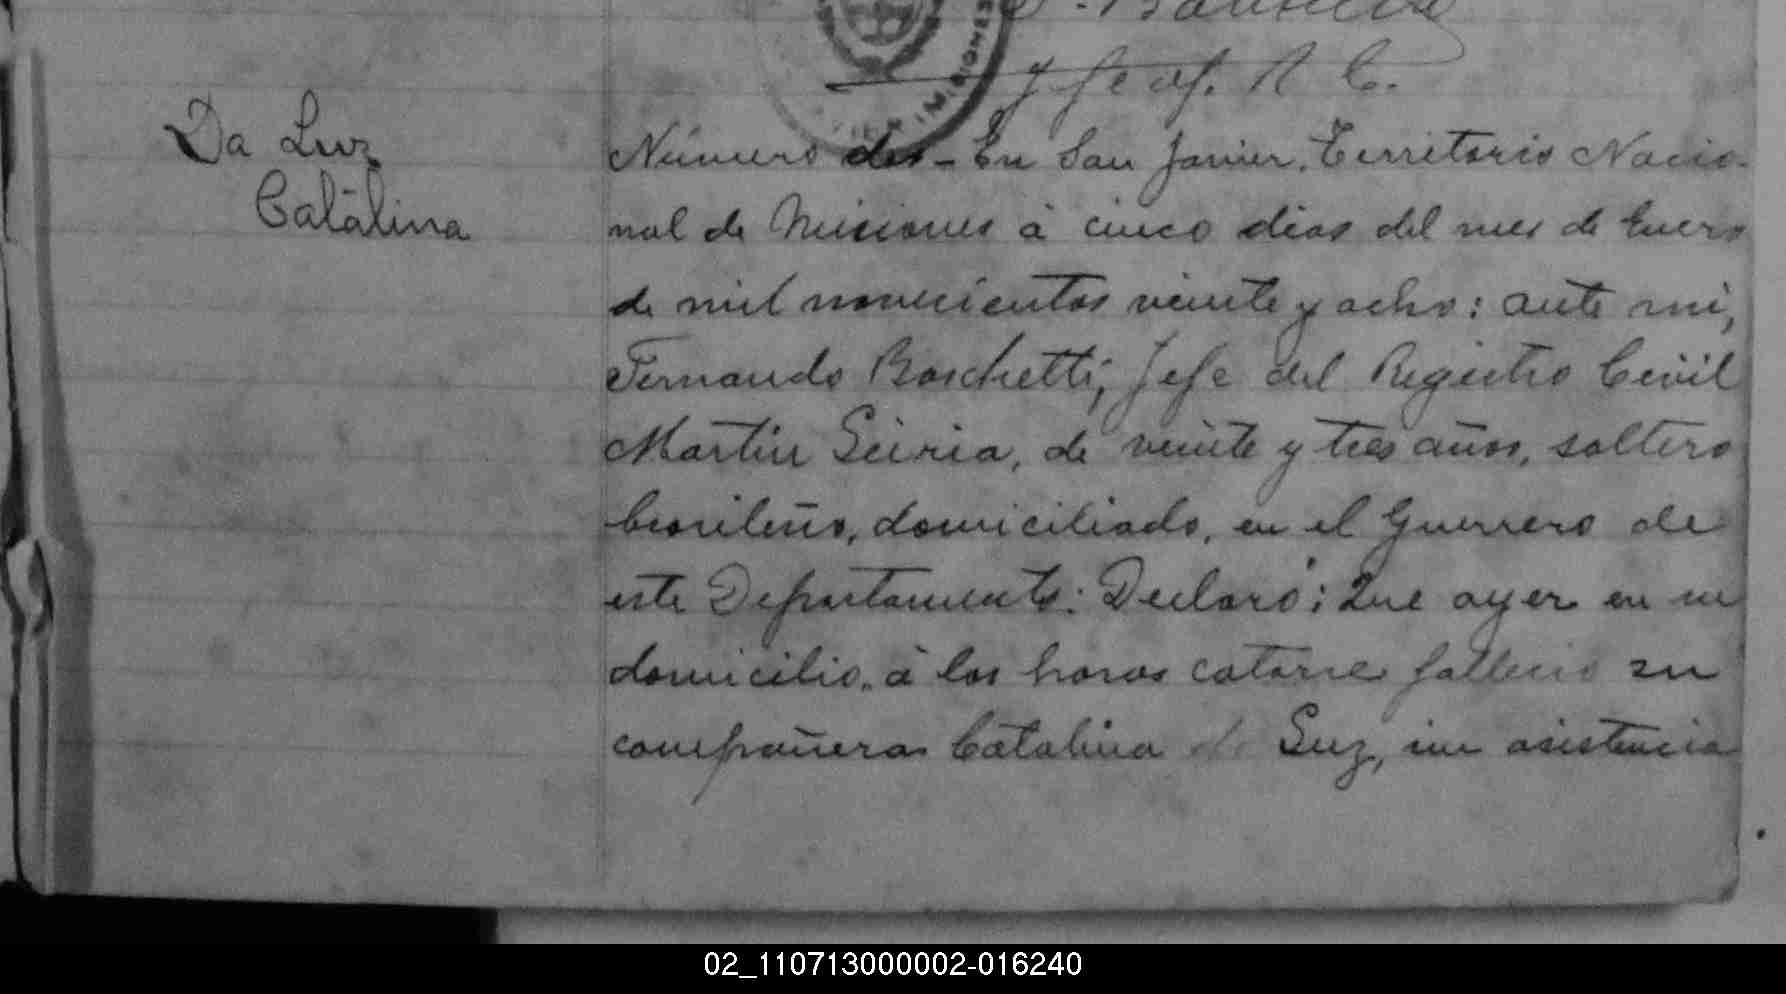 F. Boschetti
Jefe of. R C.
Da Luz
Catalina
Número dos - En San Javier. Territorio Nacio-
nal de Misiones á cinco dias del mes de Enero
de mil novecientos veinte y ocho: ante mi,
Fernando Boschetti, Jefe del Registro Civil
Martin, de veinte y tres años, soltero
brasileño, domiciliado, en el Guerrero de
este Departamento: Declaró: Que ayer en su
domicilio. á las horas catorce fallecio su
compañera Catalina de Luz, sin asistencia
02_110713000002-016240